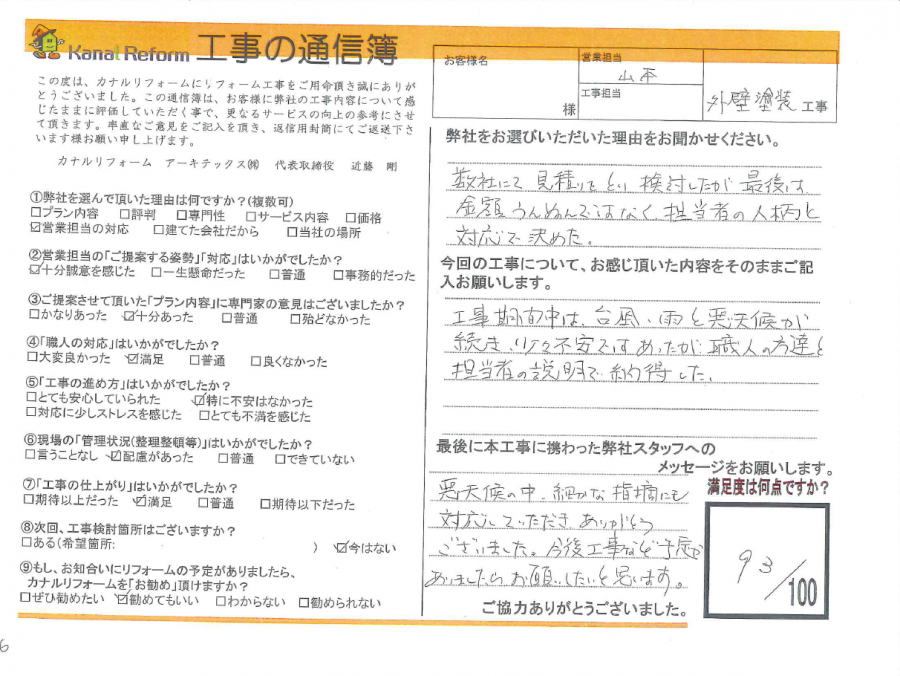 Kanal Reform 工事の通信簿
この度は、カナルリフォームにリフォーム工事をご用命頂き誠にありが
とうございました。この通信簿は、お客様に弊社の工事内容について感
じたままに評価していただく事で、更なるサービスの向上の参考にさせ
て頂きます。率直なご意見をご記入を頂き、返信用封筒にてご返送下さ
います様お願い申し上げます。
カナルリフォーム アーキテックス㈱ 代表取締役 近藤 剛
お客様名
様
営業担当
山本
工事担当
外壁塗装工事
①弊社を選んで頂いた理由は何ですか?(複数可)
□プラン内容 □評判 □専門性 □サービス内容 □価格
☑営業担当の対応 □建てた会社だから □当社の場所
②営業担当の「ご提案する姿勢」「対応」はいかがでしたか?
☑十分誠意を感じた □一生懸命だった □普通 □事務的だった
③ご提案させて頂いた「プラン内容」に専門家の意見はございましたか?
□かなりあった ☑十分あった □普通 □殆どなかった
④「職人の対応」はいかがでしたか?
□大変良かった ☑満足 □普通 □良くなかった
⑤「工事の進め方」はいかがでしたか?
□とても安心していられた ☑特に不安はなかった
□対応に少しストレスを感じた □とても不満を感じた
⑥現場の「管理状況(整理整頓等)」はいかがでしたか?
□言うことなし ☑配慮があった □普通 □できていない
⑦「工事の仕上がり」はいかがでしたか?
□期待以上だった ☑満足 □普通 □期待以下だった
⑧次回、工事検討箇所はございますか?
□ある(希望箇所: ) ☑今はない
⑨もし、お知合いにリフォームの予定がありましたら、
カナルリフォームを「お勧め」頂けますか?
□ぜひ勧めたい ☑勧めてもいい □わからない □勧められない
弊社をお選びいただいた理由をお聞かせください。
数社にて見積りをとり検討したが最後は
金額うんぬんではなく、担当者の人柄と
対応で決めた。
今回の工事について、お感じ頂いた内容をそのままご記
入お願いします。
工事期間中は、台風、雨と悪天候が
続き、不安ではあったが職人の方達と
担当者の説明で納得した。
最後に本工事に携わった弊社スタッフへの
メッセージをお願いします。
悪天候の中、細かな指摘にも
対応していただきありがとう
ございました。今後工事など予定が
ありましたらお願いしたいと思います。
満足度は何点ですか?
93/100
ご協力ありがとうございました。
6